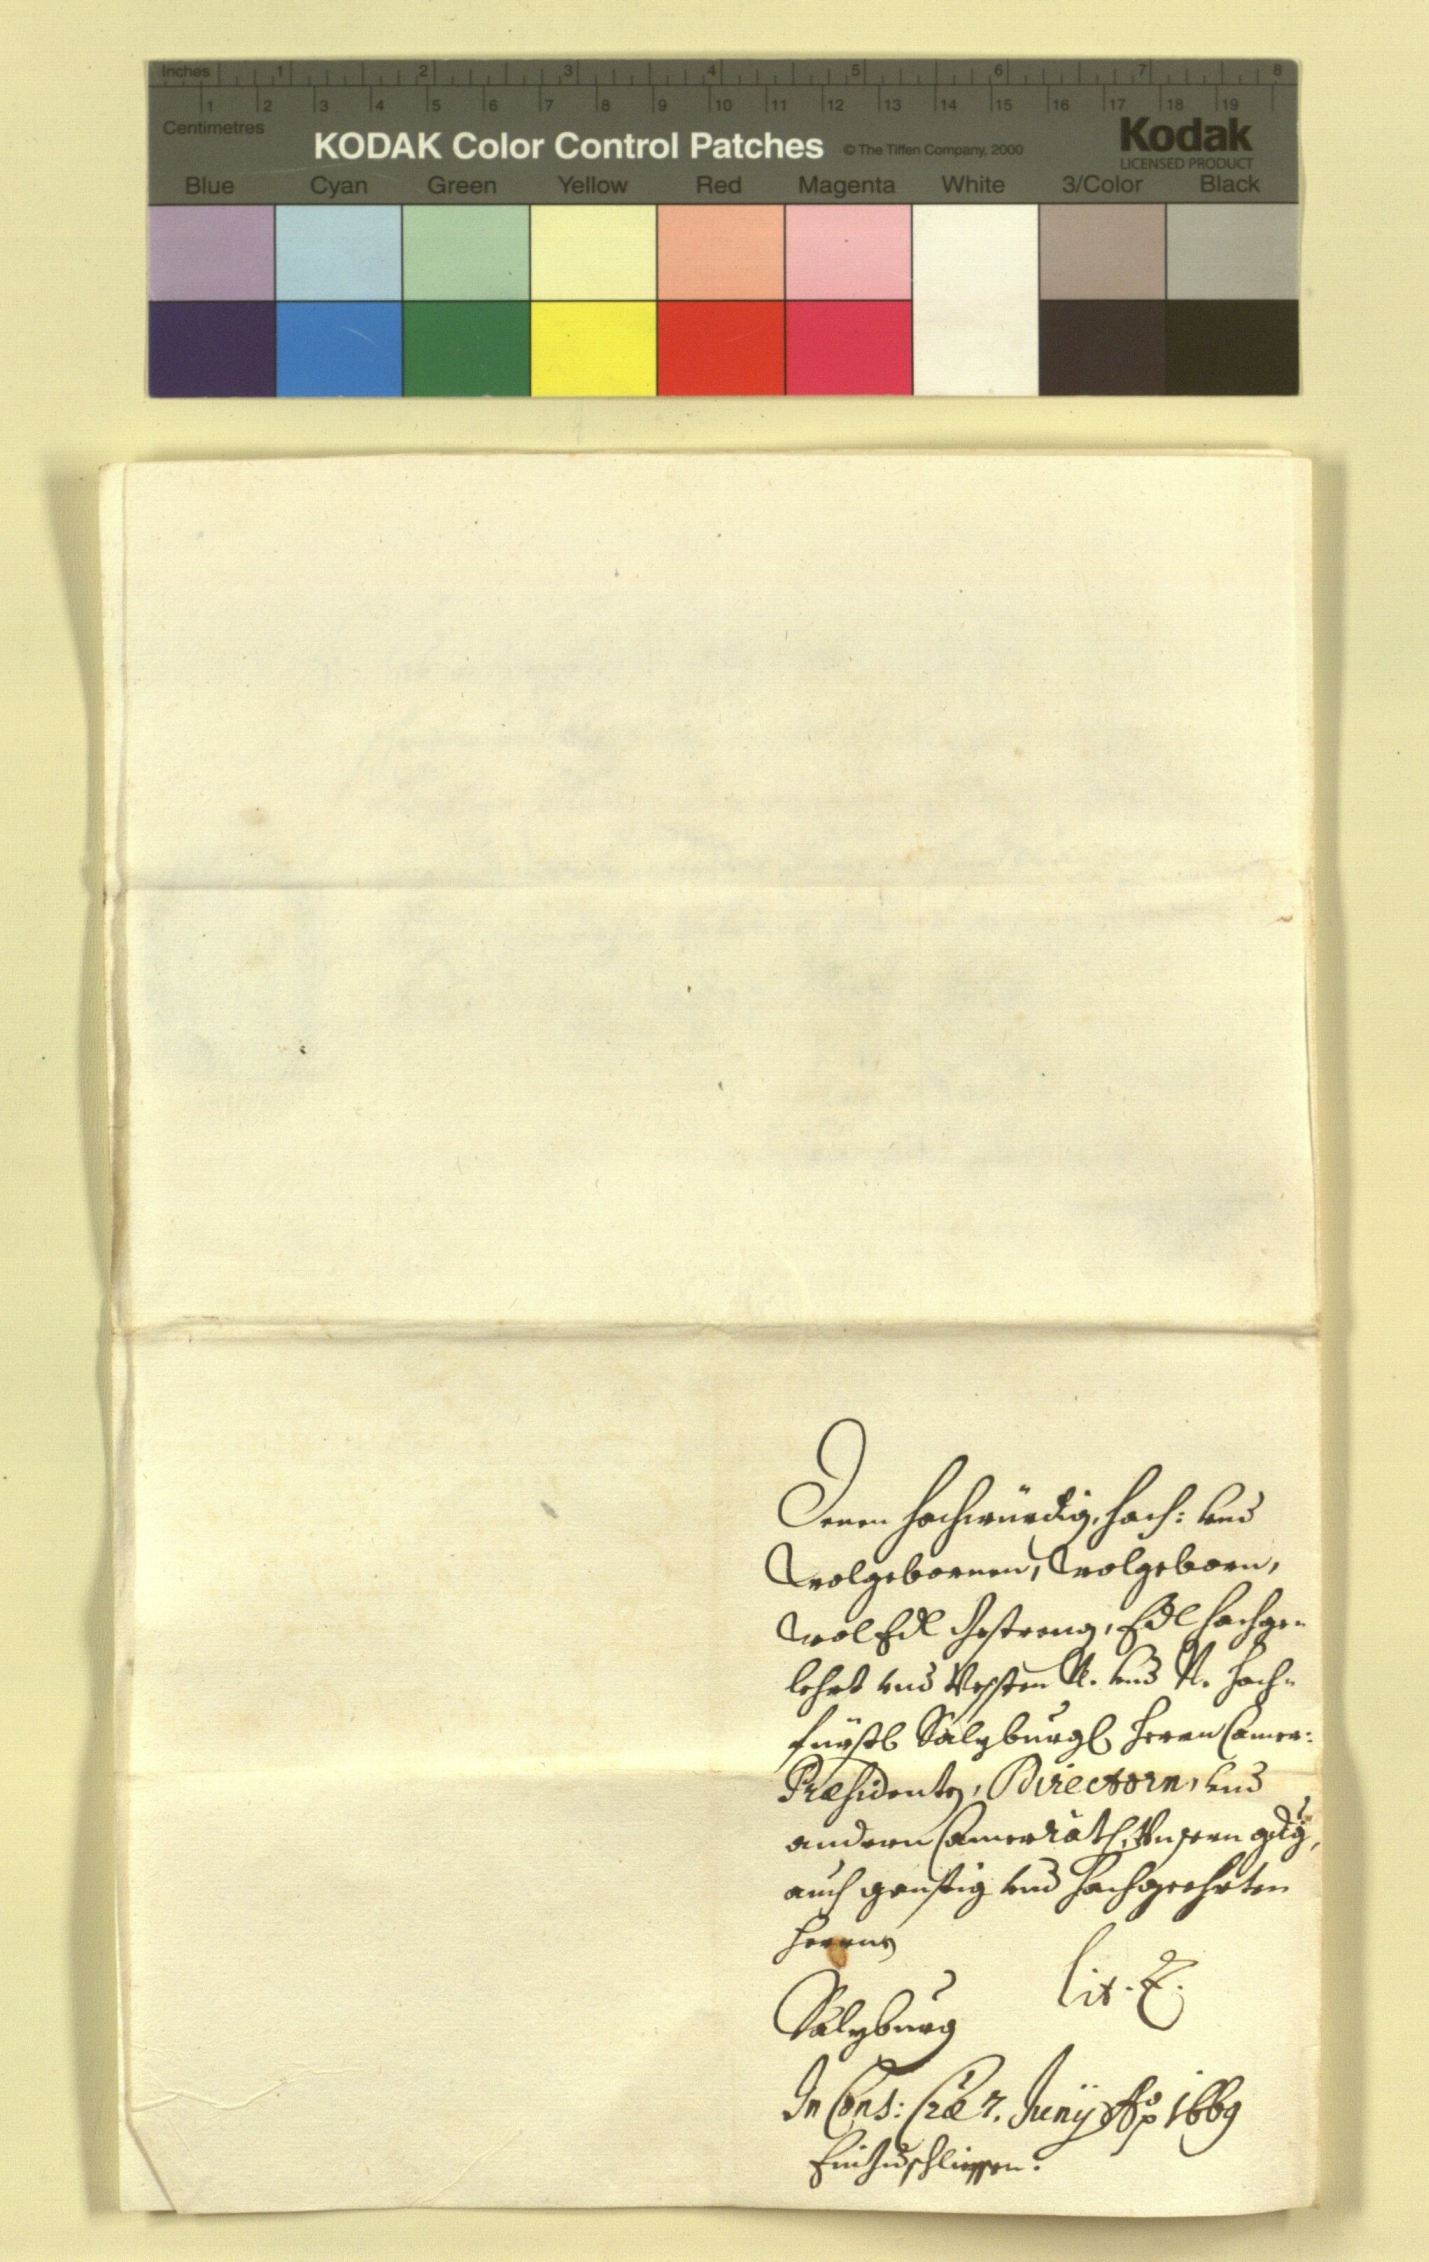 Inches 1 2 3 4 5 6 7 8
1 2 3 4 5 6 7 8 9 10 11 12 13 14 15 16 17 18 19
Centimetres
KODAK Color Control Patches © The Tiffen Company, 2000 Kodak
LICENSED PRODUCT
Blue Cyan Green Yellow Red Magenta White 3/Color Black
Denen Hochwürdig, Hoch: vnd
Wolgebornen, Wolgeborn,
Wol Edl Gestreng, Edl Hochge-
lehrt vnd Vessten N. vnd N. Hoch-
fürstl Salzburgl Herrn Camer:
Præsidentn, Directorn, vnd
andern Camerräth, Vnsern gdig,
auch gonstig vnd Hochgeehrten
Herrnn
lit. E.
Salzburg
In Cons: Cræ 7. Junÿ Ao 1669
Einzuschliessen.